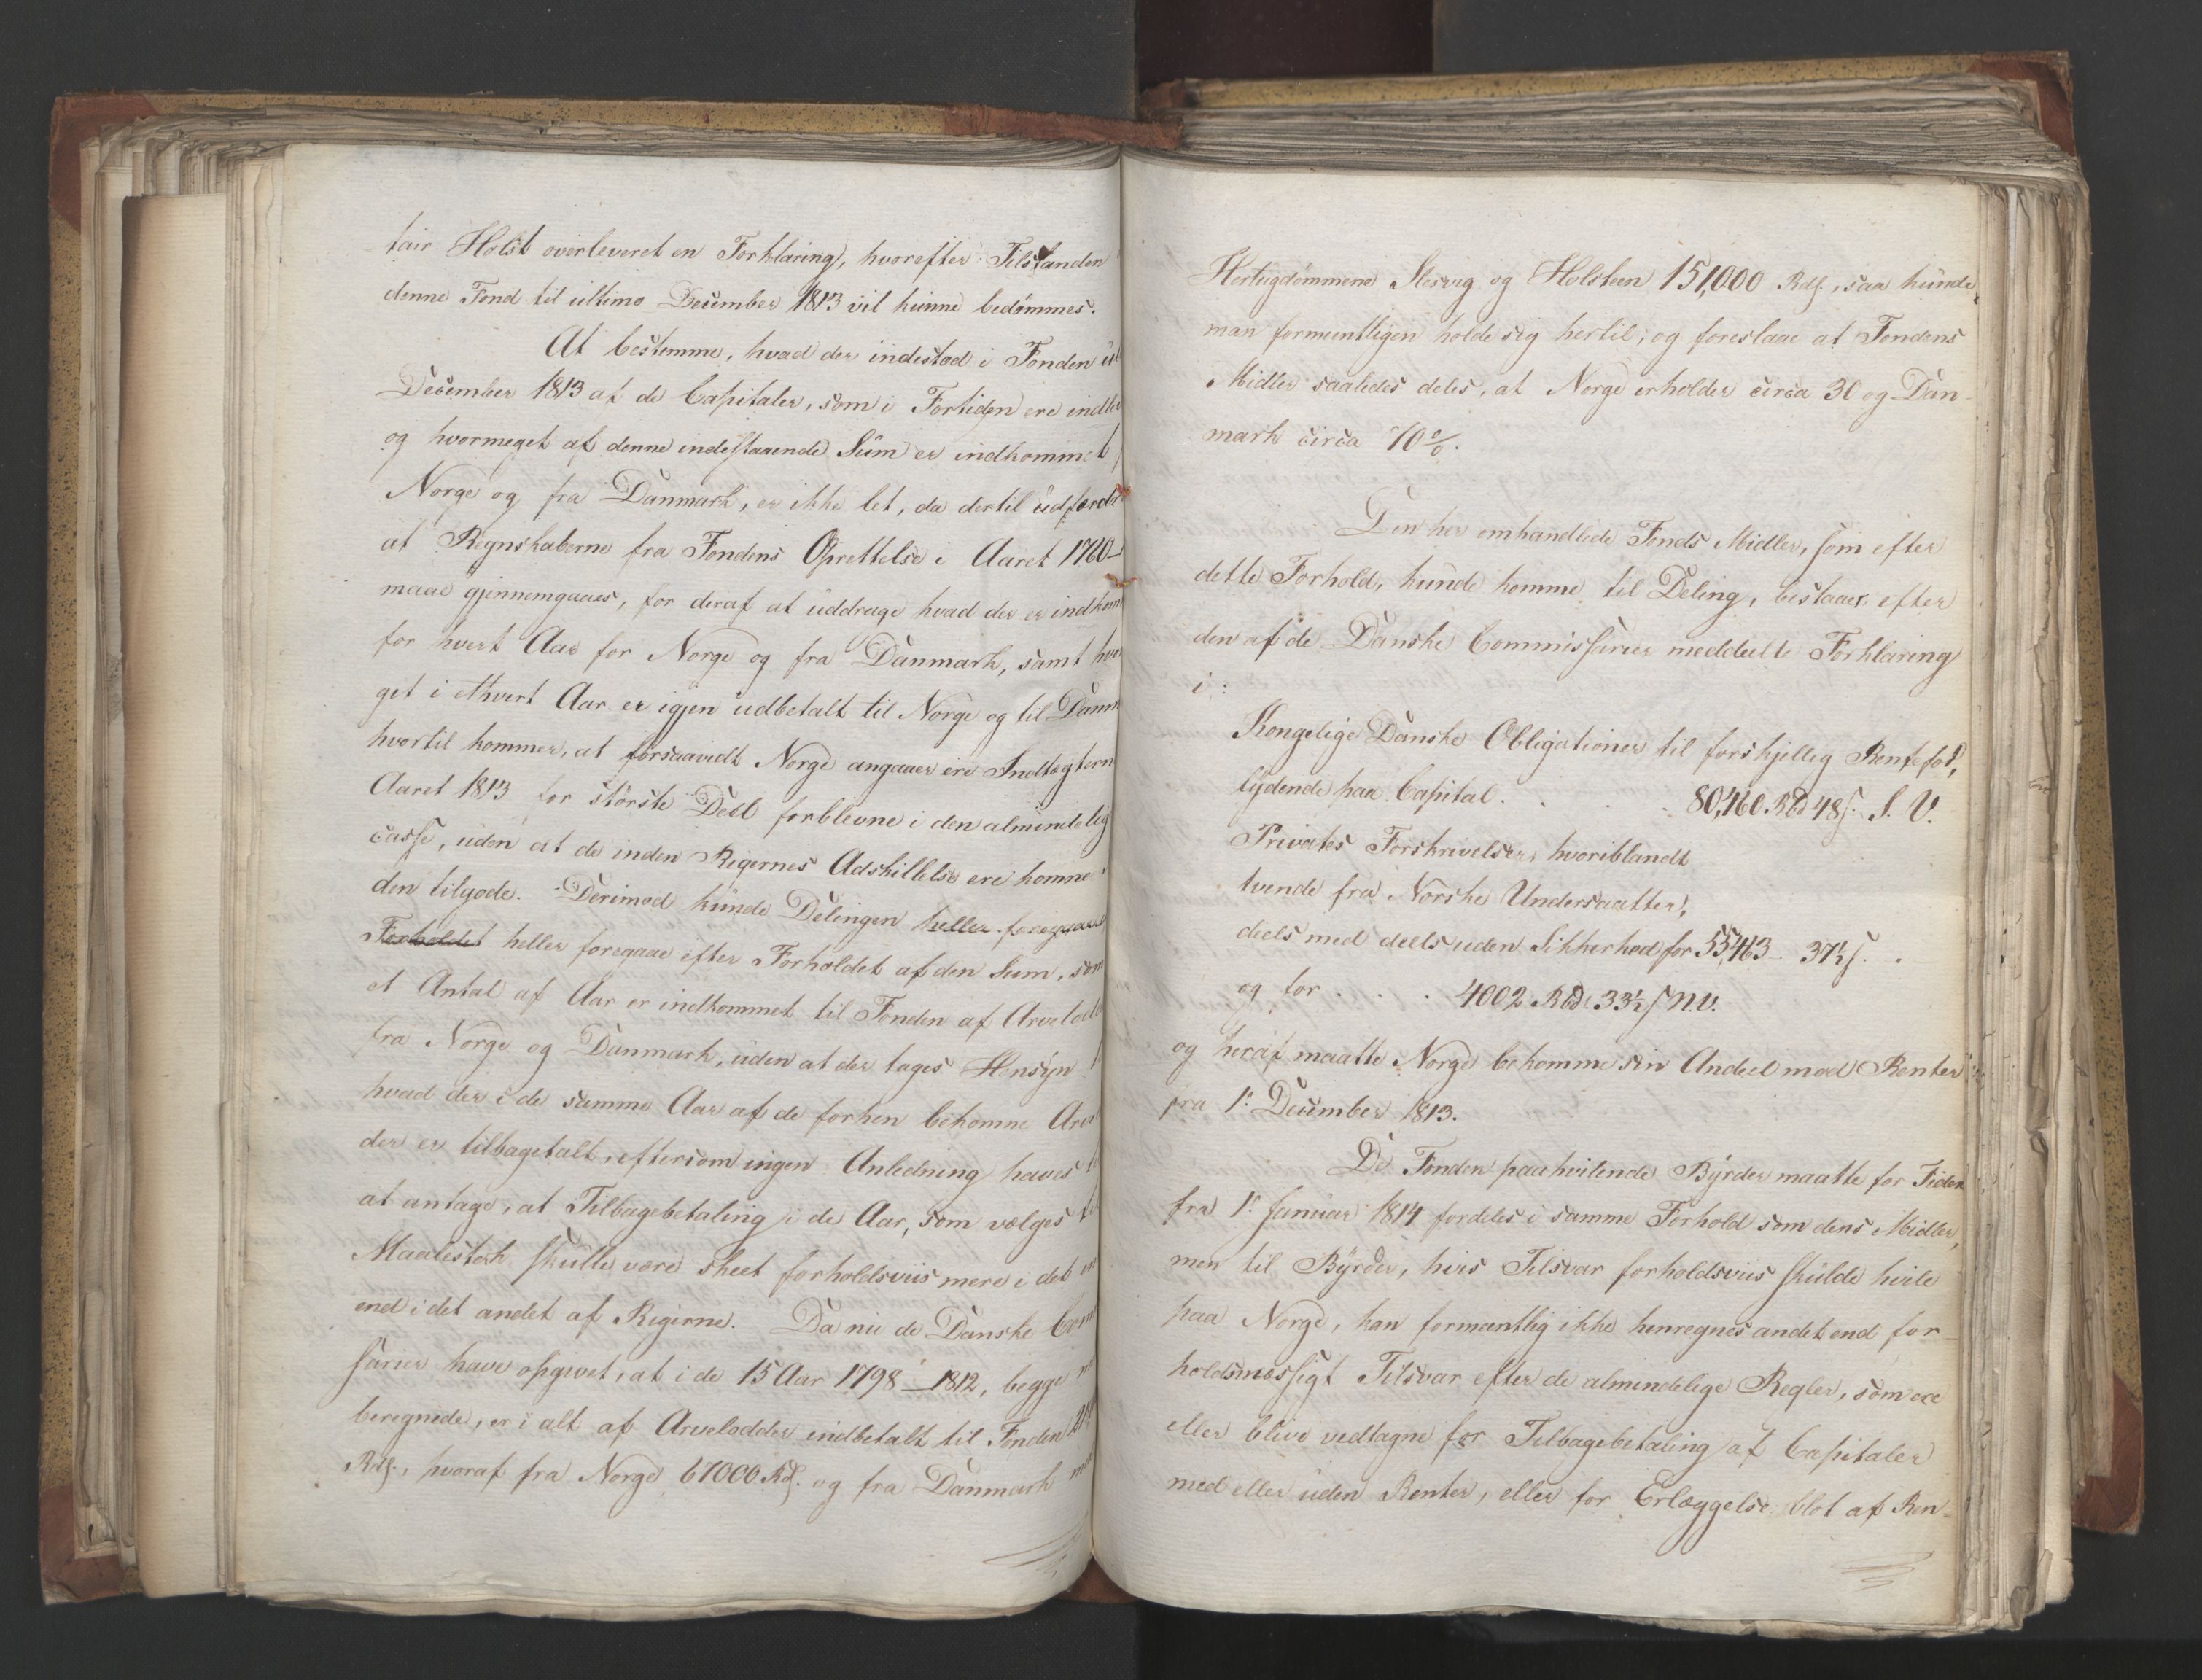 tair Holst overleveret en Forklaring, hvorefter Tilstanden
denne Fond til ultimo December 1813 vil kunne bedömmes.
At bestemme, hvad der indestod i Fonden
December 1813 af de Capitaler, som i Fortiden ere
og hvormeget af denne indestaaende Sum er indkommet
Norge og fra Danmark, er ikke let, da dertil
at Regnskaberne fra Fondens Oprettelse i Aaret 1760
maae gjennemgaaes, for deraf at uddrage hvad der er
for hvert Aar for Norge og fra Danmark, samt
get i ethvert Aar er igjen udbetalt til Norge og til
hvortil kommer, at forsaavidt Norge angaaer ere
Aaret 1813 for störste Deel forblevne i den
casse, uden at de inden Rigernes Adskillelse ere komne
den tilgode. Derimod kunde Delingen heller foregaae
Forholdet heller foregaae efter Forholdet af den Sum, som
et Antal af Aar er indkommet til Fonden af
fra Norge og Danmark, uden at der tages Hensyn
hvad der i de samme Aar af de forhen bekomne
der er tilbagetalt, eftersom ingen Anledning haves
at antage, at Tilbagebetaling i de Aar, som vælges
Maalestok skulle være skeet forholdsviis mere i det
end i det andet af Rigerne. Da nu de Danske
sarier have opgivet, at i de 15 Aar 1798 – 1812, begge
beregnede, er i alt af Arvelodder indbetalt til Fonden
Rdlr., hvoraf fra Norge 67000 Rdlr. og fra Danmark
Hertugdömmene Slesvig og Holsteen 151,000 Rdlr., saa kunde
man formeentligen holde sig hertil, og foreslaae at Fondens
Midler saaledes deles, at Norge erholder circa 30 og Dan-
mark circa 70 %.
Den her omhandlede Fonds Midler, som efter
dette Forhold, kunde komme til Deling, bestaaer efter
den af de Danske Commissarier meddeelte Forklaring
i:
Kongelige Danske Obligationer til forskjellig Rentefod,
lydende paa Capital. . . . . 80,460 Rbd 48 s. S. V.
Privates Forskrivelser, hvoriblandt
tvende fra Norske Undersaatter,
deels med deels uden Sikkerhed for 55,463 . 37½ s. .
og for . . . 4002 Rbd. 33½ s N.V.
og heraf maatte Norge bekomme sin Andeel med Renter
fra 1. December 1813.
De Fonden paahvilende Byrder maatte for Tiden
fra 1. Januar 1814 fordeles i samme Forhold som dens Midler,
men til Byrder, hvis Tilsvar forholdsviis skulde hvile
paa Norge, kan formeentlig ikke henregnes andet end for-
holdsmæssigt Tilsvar efter de almindelige Regler, som ere
eller blive vedtagne for Tilbagebetaling af Capitaler
med eller uden Renter, eller for Erlæggelse blot af Ren-